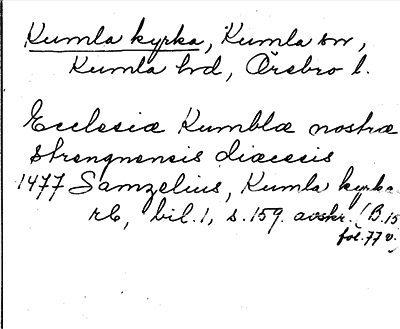 Kumla kyrka, Kumla sn,
Kumla hd, Örebro l.
Ecclesiæ Kumblæ nostræ
strengnensis diœcesis
1477 Samzelius, Kumla kyrka
rb, bil. 1, s. 159. avskr. (B. 15
fol. 77 v.